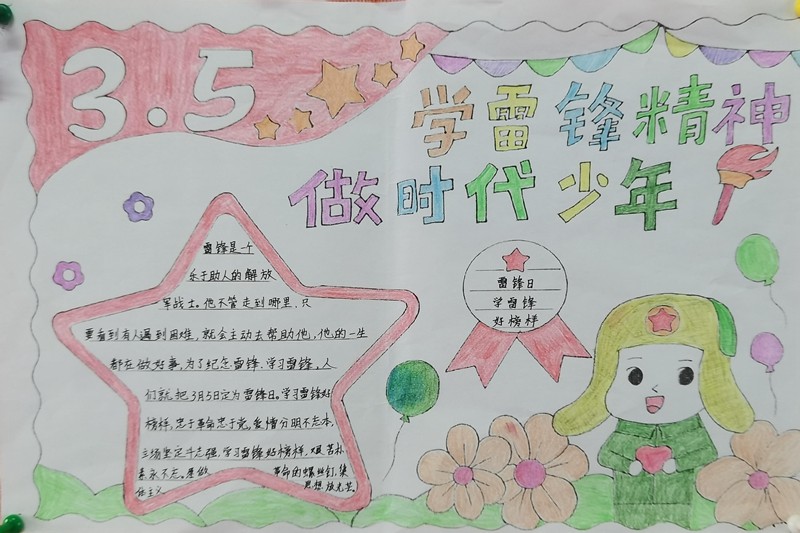 3.5
学雷锋精神
做时代少年
雷锋是一个
乐于助人的解放
军战士。他不管走到哪里,只
要看到有人遇到困难,就会主动去帮助他,他的一生
都在做好事,为了纪念雷锋,学习雷锋,人
们就把3月5日定为雷锋日。学习雷锋好
榜样,忠于革命忠于党,爱憎分明不忘本,
立场坚定斗志强,学习雷锋好榜样,艰苦朴
素永不忘。愿做 革命的螺丝钉,集
体主义 思想放光芒。
雷锋日
学雷锋
好榜样